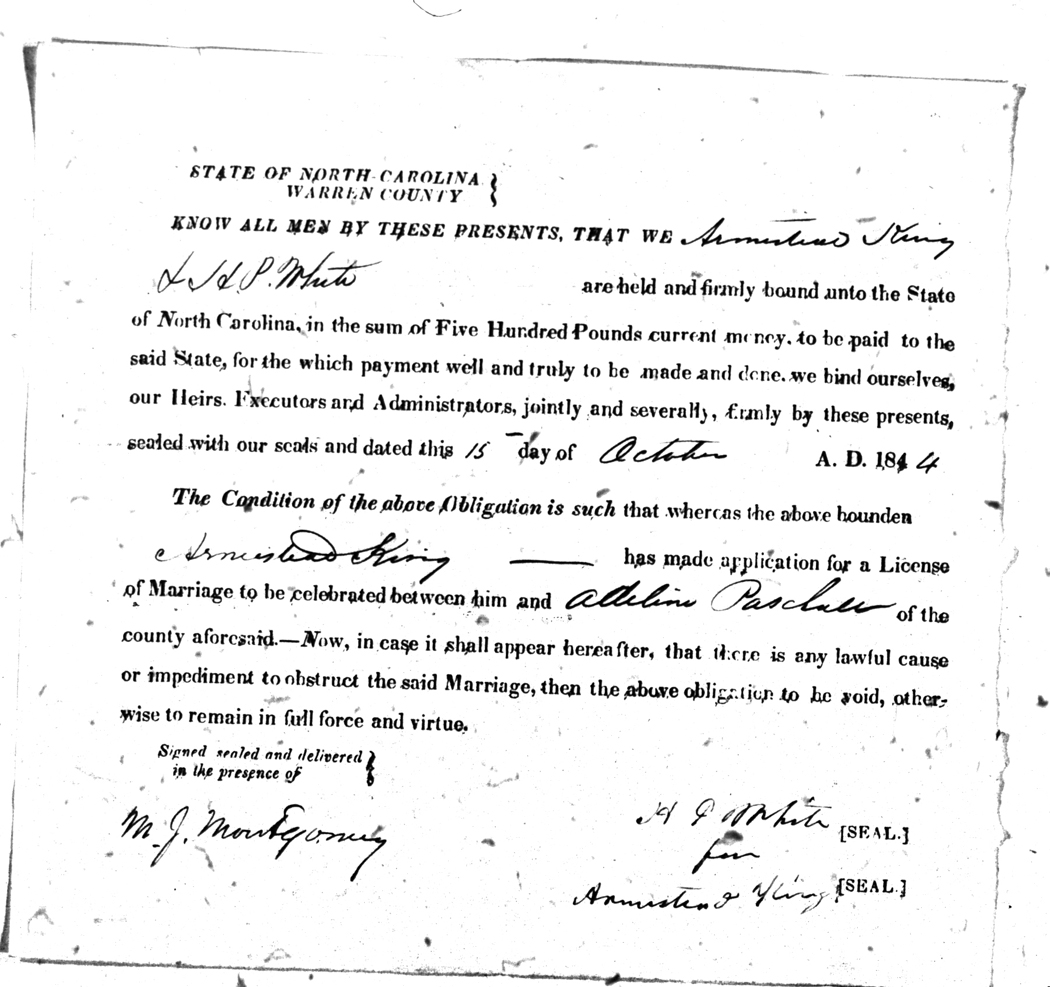 STATE OF NORTH CAROLINA
WARREN COUNTY
KNOW ALL MEN BY THESE PRESENTS, THAT WE Armistead King
& H P. White are held and firmly bound unto the State
of North Carolina, in the sum of Five Hundred Pounds current money, to be paid to the
said State, for the which payment well and truly to be made and done, we bind ourselves,
our Heirs. Executors and Administrators, jointly and severally, firmly by these presents,
sealed with our seals and dated this 15 day of October A. D. 1844
The Condition of the above Obligation is such that whereas the above bounden
Armistead King — has made application for a License
of Marriage to be celebrated between him and Adeline Paschall of the
county aforesaid.—Now, in case it shall appear hereafter, that there is any lawful cause
or impediment to obstruct the said Marriage, then the above obligation to be void, other-
wise to remain in full force and virtue.
Signed sealed and delivered
in the presence of
M. J. Montgomery
H P White [SEAL.]
for
Armistead King [SEAL.]